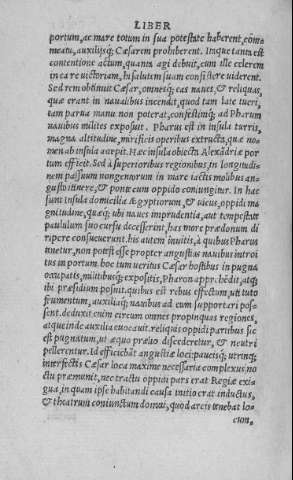 LIBER
portum, ac mare totum in sua potestate haberent, cōmeatu, auxilijsq; Cæsarem prohiberent. Itaque tanta est
contentione actum, quanta agi debuit, cum ille celerem
in ea re uictoriam, hi salutem suam consistere uiderent.
Sed rem obtinuit Cæsar, omnesq́; eas naues, & reliquas,
quæ erant in naualibus incendit, quod tam late tueri,
tam parua manu non poterat, confestimq́; ad Pharum
nauibus milites exposuit. Pharus est in insula turris,
magna altitudine, mirificis operibus extructa, quæ nomen ab insula accepit. Hæc insula obiecta Alexādriæ portum efficit. Sed à superioribus regionibus, in longitudinem passuum nongentorum in mare iactis molibus angusto itinere, & ponte cum oppido coniungitur. In hac
sunt insula domicilia Ægyptiorum, & uicus, oppidi magnitudine, quæq́; ubi naues imprudentia, aut tempestate
paululum suo cursu decesserint, has more prædonum diripere consueuerunt. his autem inuitis, à quibus Pharus
tenetur, non potest esse propter angustias nauibus introitus in portum. hoc tum ueritus Cæsar hostibus in pugna
occupatis, militibusq́; expositis, Pharon apprehēdit, atq́;
ibi præsidium posuit. quibus est rebus effectum, uti tuto
frumentum, auxiliaq́; nauibus ad eum supportari possent. dimisit enim circum omnes propinquas regiones,
atque inde auxilia euocauit. reliquis oppidi partibus sic
est pugnatum, ut æquo prælio discederetur, & neutri
pellerentur. Id efficiebāt angustiæ loci: paucisq́; utrinq;
interfectis Cæsar loca maxime necessaria complexus, noctu præmunit. nec tractu oppidi pars erat Regiæ exigua, in quam ipse habitandi causa initio erat inductus,
& theatrum coniunctum domui, quod arcis tenebat locum,